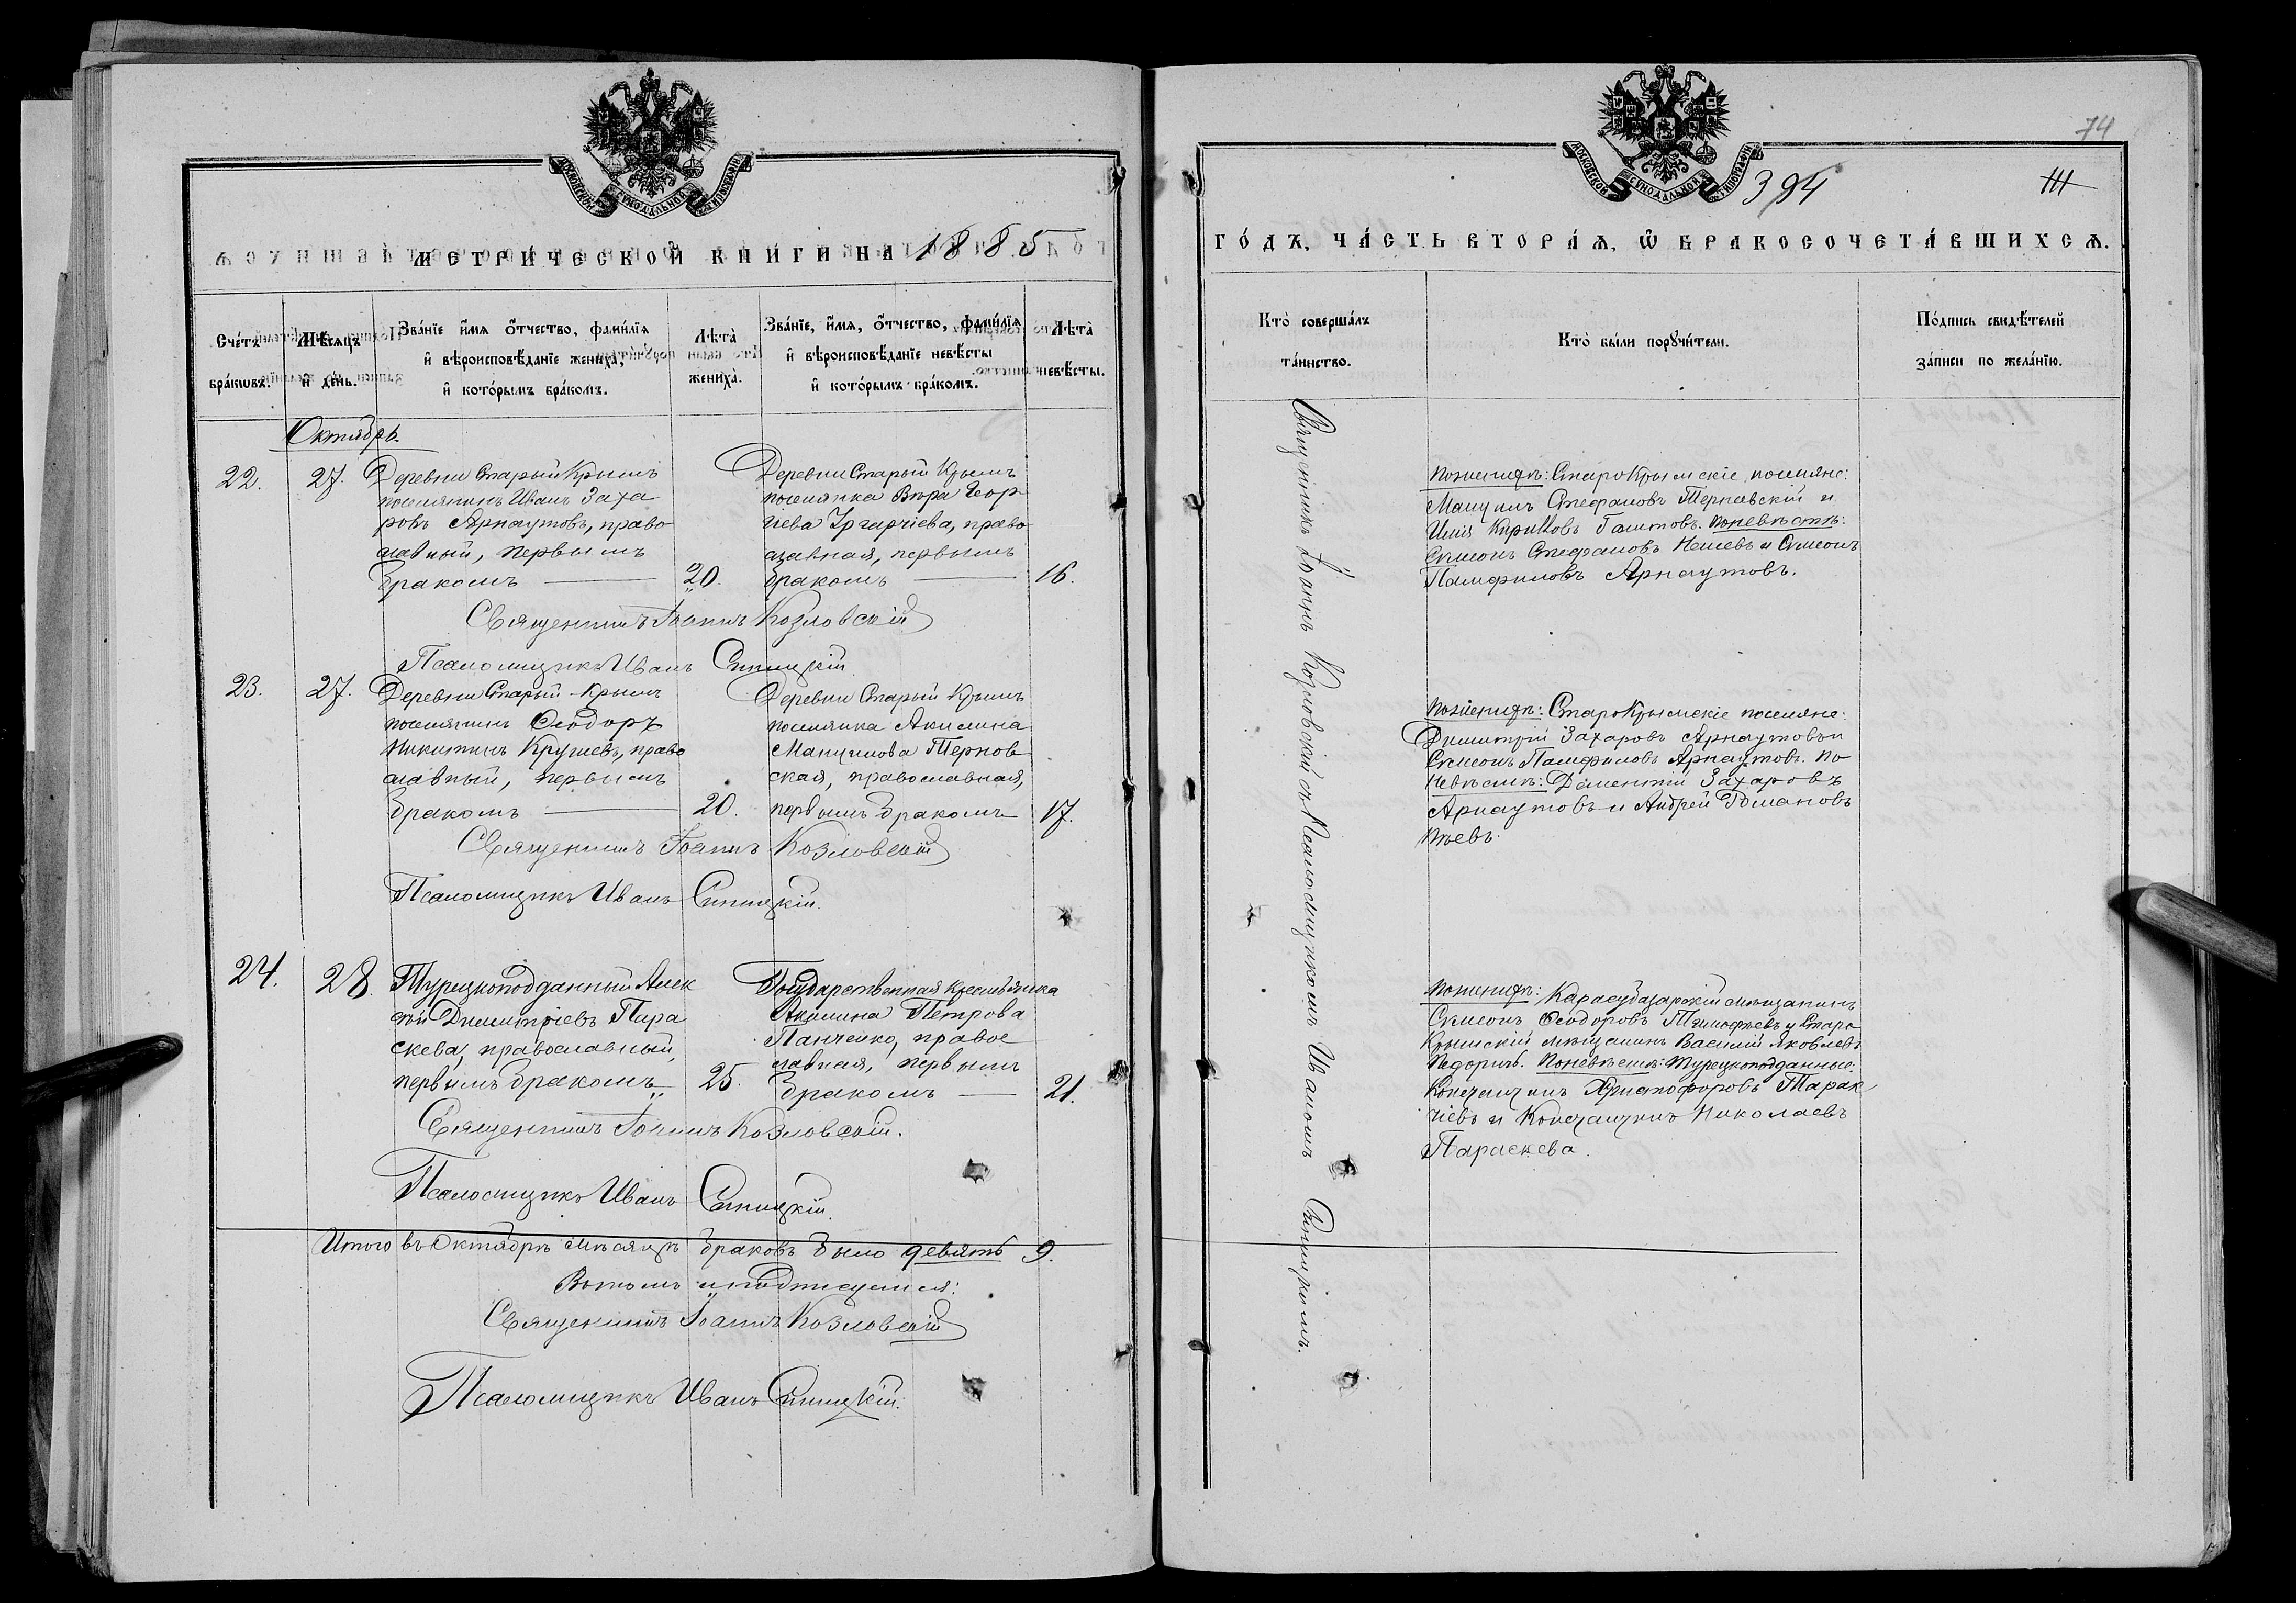 МОСКОВСКОЙ СѴНОДАЛЬНОЙ ТИПОГРАФІИ
МЕТРИЧЕСКОЙ КНИГИ НА 1885
Счетъ браковъ.
Мѣсяцъ и день.
Званіе имя отчество, фамилія и вѣроисповѣданіе жениха, и которымъ бракомъ.
Лѣта жениха.
Званіе, имя, отчество, фамилія и вѣроисповѣданіе невѣсты и которымъ бракомъ.
Лѣта невѣсты.
Октябрь.
22. 27.
Деревни Старый Крымъ
поселянинъ Иванъ Заха
ровъ Арнаутовъ, право
славный, первымъ
бракомъ — 20.
Деревни Старый Крымъ
поселянка Вѣра Геор
гіева, право
славная, первымъ
бракомъ — 16.
Священникъ Іоаннъ Козловскій
Псаломщикъ Иванъ Синицкій
23. 27.
Деревни Старый-Крымъ
поселянинъ Ѳеодоръ
Никитинъ, право
славный, первымъ
бракомъ — 20.
Деревни Старый Крымъ
поселянка Акилина
Мануилова Тернов
ская, православная,
первымъ бракомъ 17.
Священникъ Іоаннъ Козловскій
Псаломщикъ Иванъ Синицкій.
24. 28.
Турецкоподданный Алек
сѣй Димитріевъ Пара
скева, православный,
первымъ бракомъ 25.
Государственная крестьянка
Акилина Петрова
Панченко, право
славная, первымъ
бракомъ — 21.
Священникъ Іоаннъ Козловскій.
Псаломщикъ Иванъ Синицкій.
Итого въ Октябрѣ мѣсяцѣ браковъ было девять 9.
Въ томъ и подписуемся:
Священникъ Іоаннъ Козловскій
Псаломщикъ Иванъ Синицкій.
74
МОСКОВСКОЙ СѴНОДАЛЬНОЙ ТИПОГРАФІИ
394
ГОДЪ, ЧАСТЬ ВТОРАЯ, Ѡ БРАКОСОЧЕТАВШИХСЯ.
Кто совершалъ таинство.
Кто были поручители.
Подпись свидѣтелей записи по желанію.
Священникъ Іоаннъ Козловскій съ Псаломщикомъ Иваномъ Синицкимъ.
По женихѣ: СтароКрымскіе поселяне:
Мануилъ Стефановъ Терновскій и
Илія Кирилловъ. По невѣстѣ:
Симеонъ Стефановъ и Симеонъ
Памфиловъ Арнаутовъ.
По женихѣ: СтароКрымскіе поселяне:
Димитрій Захаровъ Арнаутовъ и
Симеонъ Памфиловъ Арнаутовъ. По
невѣстѣ: Дементій Захаровъ
Арнаутовъ и Андрей Романовъ
По женихѣ: Карасубазарскій мѣщанинъ
Симеонъ Ѳеодоровъ Тимофѣевъ и Старо
Крымскій мѣщанинъ Василій Яковлевъ
По невѣстѣ: Турецкоподданные:
Константинъ Христофоровъ Тарак
чіевъ и Константинъ Николаевъ
Параскева.